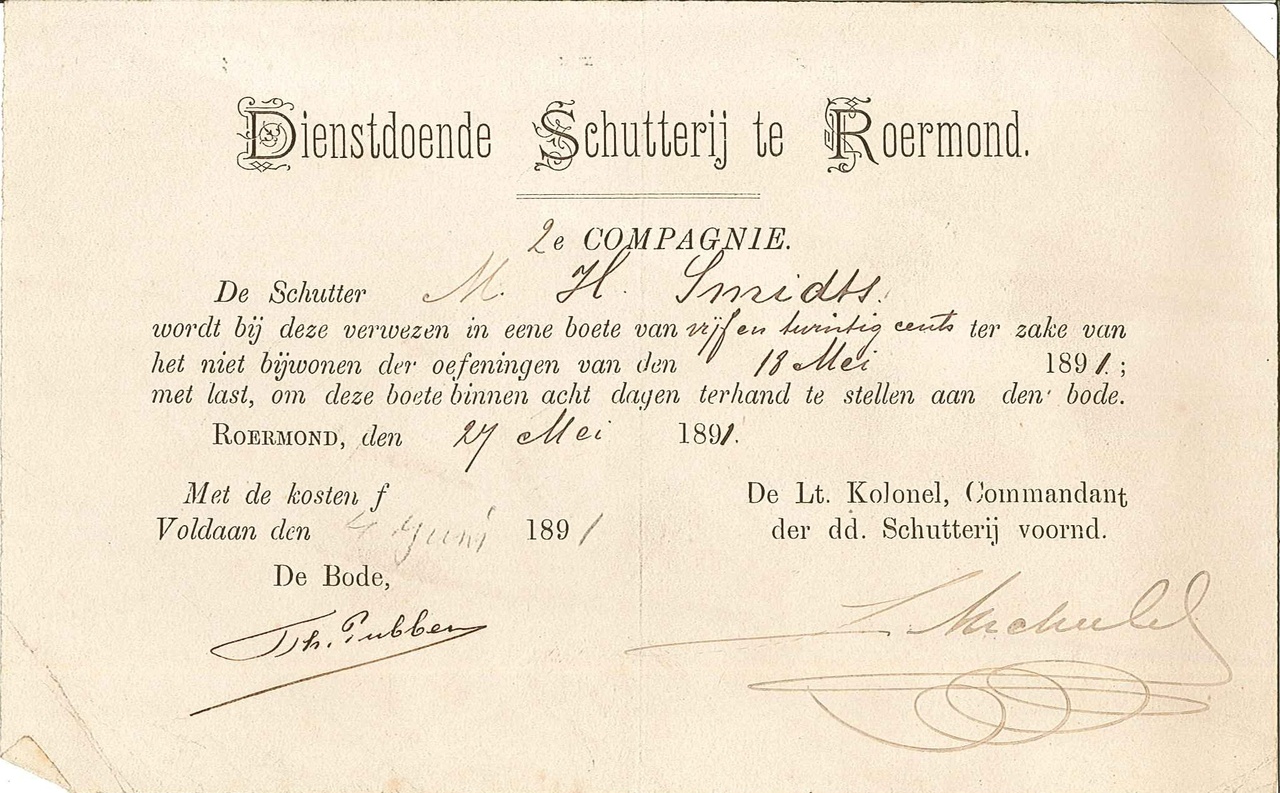 Dienstdoende Schutterij te Roermond.
2e COMPAGNIE.
De Schutter M. H. Smidts.
wordt bij deze verwezen in eene boete van vijf en twintig cents ter zake van
het niet bijwonen der oefeningen van den 18 Mei 1891.;
met last, om deze boete binnen acht dagen terhand te stellen aan den bode.
ROERMOND, den 27 Mei 1891.
Met de kosten f
Voldaan den 4 Juni 1891
De Lt. Kolonel, Commandant
der dd. Schutterij voornd.
De Bode,
Th.